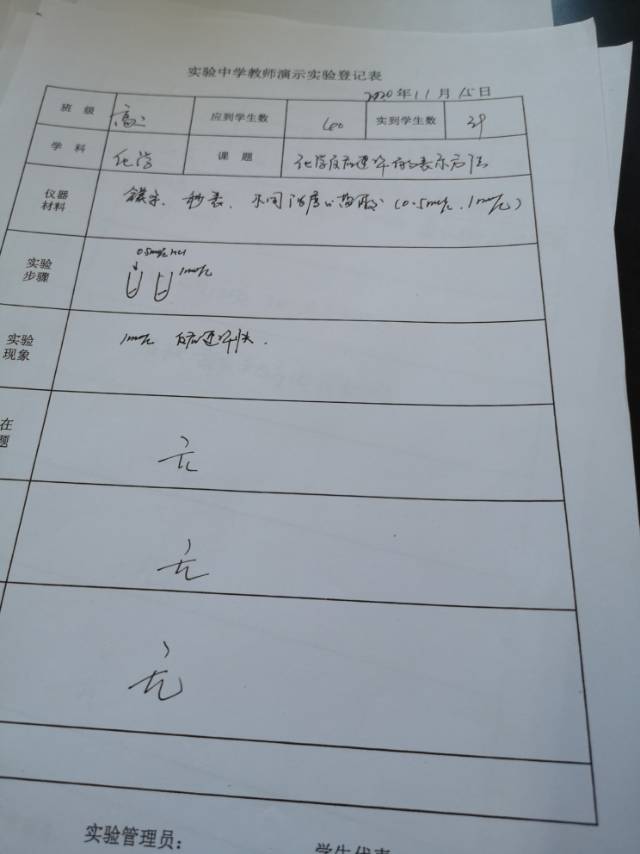 实验中学教师演示实验登记表
2020年11月15日
班 级 高二 应到学生数 实到学生数 39
学 科 化学 课 题 化学反应速率的表示方法
仪器
材料
镁条、秒表、不同浓度的盐酸 (0.5mol/L、1mol/L)
实验
步骤
0.5mol/L HCl
1mol/L
实验
现象
1mol/L 反应速率快.
在
题
无
无
无
实验管理员:
学生代表